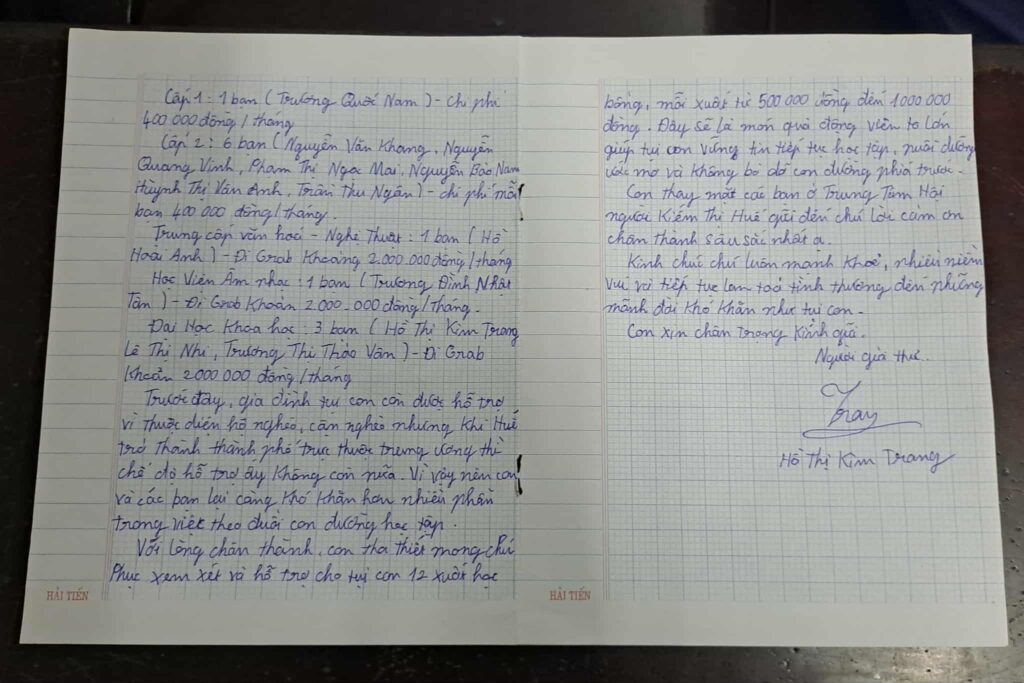 Cấp 1 : 1 bạn ( Trương Quốc Nam ) - chi phí
400 000 đồng / tháng
Cấp 2 : 6 bạn ( Nguyễn Văn Khang , Nguyễn
Quang Vinh , Phạm Thị Ngọc Mai, Nguyễn Bảo Nam
Huỳnh Thị Vân Anh , Trần Thu Ngân ) - chi phí mỗi
bạn 400 000 đồng / tháng .
Trung cấp văn hoá - Nghệ Thuật : 1 bạn ( Hồ
Hoài Anh ) - Đi Grab Khoảng 2.000.000 đồng / tháng
Học Viện Âm nhạc : 1 bạn ( Trương Đình Nhật
Tân ) - Đi Grab Khoản 2.000.000 đồng / tháng.
Đại Học Khoa học : 3 bạn ( Hồ Thị Kim Trang
Lê Thị Nhi , Trương Thị Thảo Vân ) - Đi Grab
Khoản 2.000 000 đồng / tháng
Trước đây , gia đình tụi con còn được hỗ trợ
vì thuộc diện hộ nghèo, cận nghèo nhưng khi Huế
trở thành thành phố trực thuộc trung ương thì
chế độ hỗ trợ ấy không còn nữa . Vì vậy nên con
và các bạn lại càng khó khăn hơn nhiều phần
trong việc theo đuổi con đường học tập .
Với lòng chân thành , con tha thiết mong chú
Phục xem xét và hỗ trợ cho tụi con 12 xuất học
HẢI TIẾN
bổng, mỗi xuất từ 500 000 đồng đến 1000 000
đồng . Đây sẽ là món quà động viên to lớn
giúp tụi con vững tin tiếp tục học tập , nuôi dưỡng
ước mơ và không bỏ dở con đường phía trước .
Con thay mặt các bạn ở Trung Tâm Hội
người Kiếm Thị Huế gửi đến chú lời cảm ơn
chân thành sâu sắc nhất ạ .
Kính chúc chú luôn mạnh khoẻ , nhiều niềm
vui và tiếp tục lan toả tình thương đến những
mãnh đời khó khăn như tụi con .
Con xin chân trọng kính gửi .
Người giử thư .
Tray
Hồ Thị Kim Trang
HẢI TIẾN